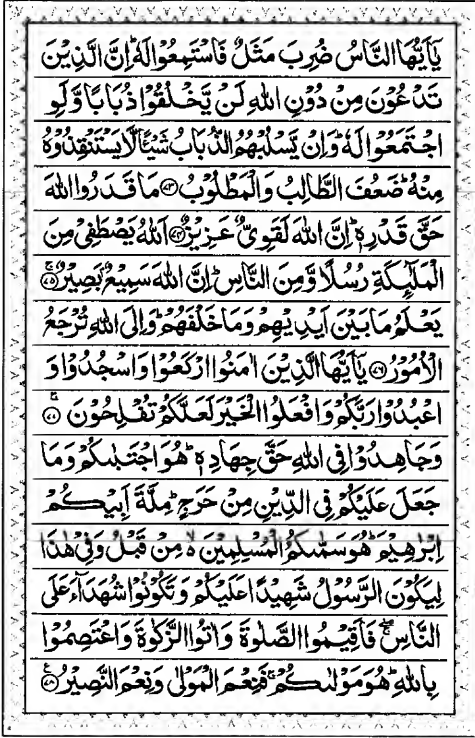 يٰۤاَيُّهَا النَّاسُ ضُرِبَ مَثَلٌ فَاسْتَمِعُوْا لَهٗ ؕ اِنَّ الَّذِيْنَ
تَدْعُوْنَ مِنْ دُوْنِ اللهِ لَنْ يَّخْلُقُوْا ذُبَابًا وَّلَوِ
اجْتَمَعُوْا لَهٗ ؕ وَاِنْ يَّسْلُبْهُمُ الذُّبَابُ شَيْـًٔا لَّا يَسْتَنْقِذُوْهُ
مِنْهُ ؕ ضَعُفَ الطَّالِبُ وَالْمَطْلُوْبُ ﴿۷۳﴾ مَا قَدَرُوا اللهَ
حَقَّ قَدْرِهٖ ؕ اِنَّ اللهَ لَقَوِيٌّ عَزِيْزٌ ﴿۷۴﴾ اَللهُ يَصْطَفِيْ مِنَ
الْمَلٰٓئِكَةِ رُسُلًا وَّمِنَ النَّاسِ ؕ اِنَّ اللهَ سَمِيْعٌۢ بَصِيْرٌ ﴿۷۵﴾ۚ
يَعْلَمُ مَا بَيْنَ اَيْدِيْهِمْ وَمَا خَلْفَهُمْ ؕ وَاِلَى اللهِ تُرْجَعُ
الْاُمُوْرُ ﴿۷۶﴾ يٰۤاَيُّهَا الَّذِيْنَ اٰمَنُوا ارْكَعُوْا وَاسْجُدُوْا وَ
اعْبُدُوْا رَبَّكُمْ وَافْعَلُوا الْخَيْرَ لَعَلَّكُمْ تُفْلِحُوْنَ ﴿۷۷﴾ۚ
وَجَاهِدُوْا فِي اللهِ حَقَّ جِهَادِهٖ ؕ هُوَ اجْتَبٰىكُمْ وَمَا
جَعَلَ عَلَيْكُمْ فِي الدِّيْنِ مِنْ حَرَجٍ ؕ مِلَّةَ اَبِيْكُمْ
اِبْرٰهِيْمَ ؕ هُوَ سَمّٰىكُمُ الْمُسْلِمِيْنَ ۙ مِنْ قَبْلُ وَفِيْ هٰذَا
لِيَكُوْنَ الرَّسُوْلُ شَهِيْدًا عَلَيْكُمْ وَتَكُوْنُوْا شُهَدَآءَ عَلَى
النَّاسِ ۖۚ فَاَقِيْمُوا الصَّلٰوةَ وَاٰتُوا الزَّكٰوةَ وَاعْتَصِمُوْا
بِاللهِ ؕ هُوَ مَوْلٰىكُمْ ۚ فَنِعْمَ الْمَوْلٰى وَنِعْمَ النَّصِيْرُ ﴿۷۸﴾